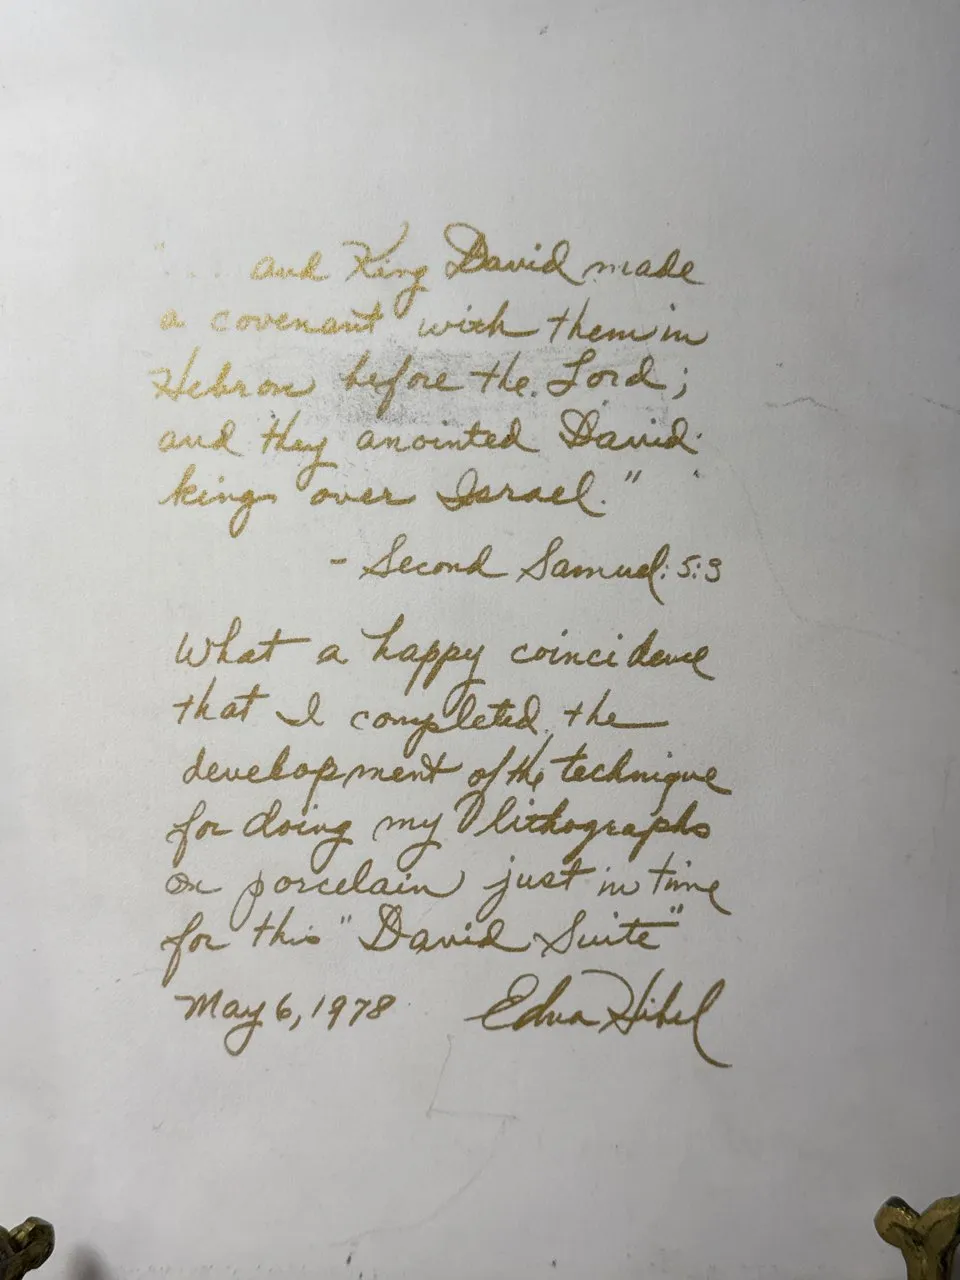 " . . . and King David made
a covenant with them in
Hebron before the Lord;
and they anointed David
king over Israel."
- Second Samuel: 5:3
What a happy coincidence
that I completed the
development of the technique
for doing my lithographs
on porcelain just in time
for this "David Suite"
May 6, 1978 Edna Hibel